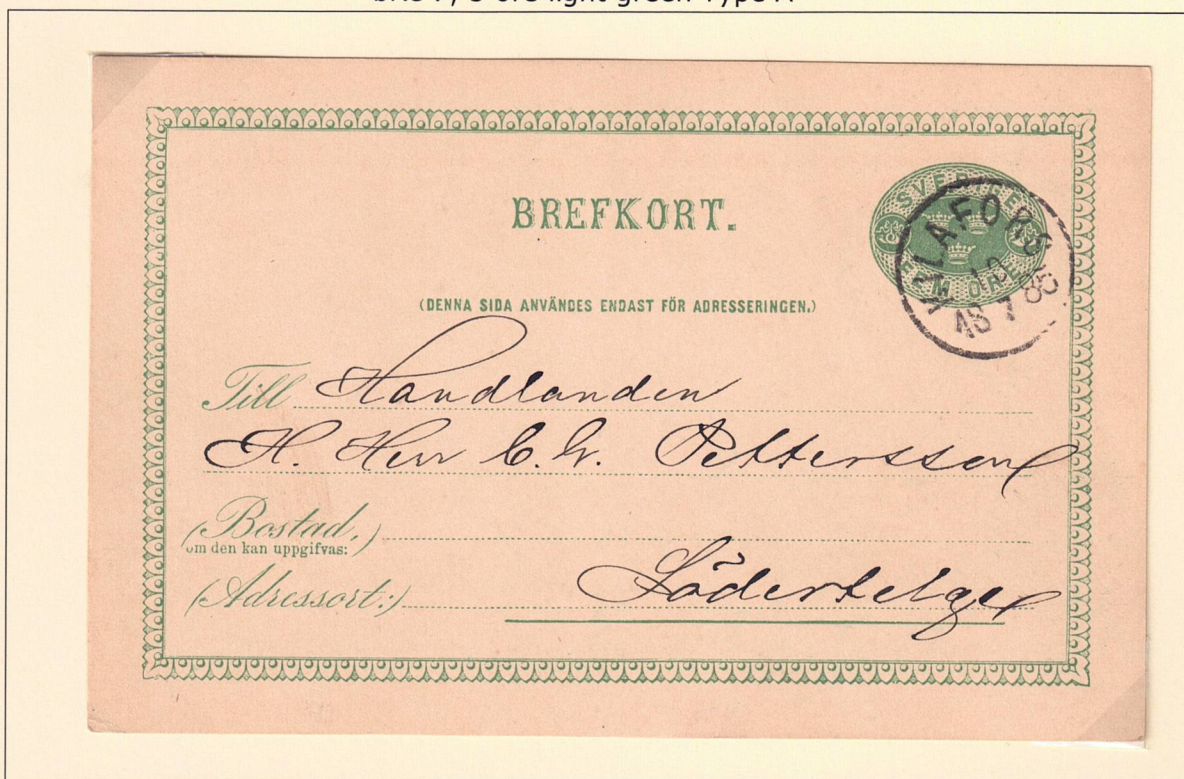 5 öre light green Type A
BREFKORT.
SVERIGE
FEM ÖRE
LAFORS
10
18 7 85
(DENNA SIDA ANVÄNDES ENDAST FÖR ADRESSERINGEN.)
Till Handlanden
H. Herr C. W. Pettersson
(Bostad.)
om den kan uppgifvas:
(Adressort:) Södertelge